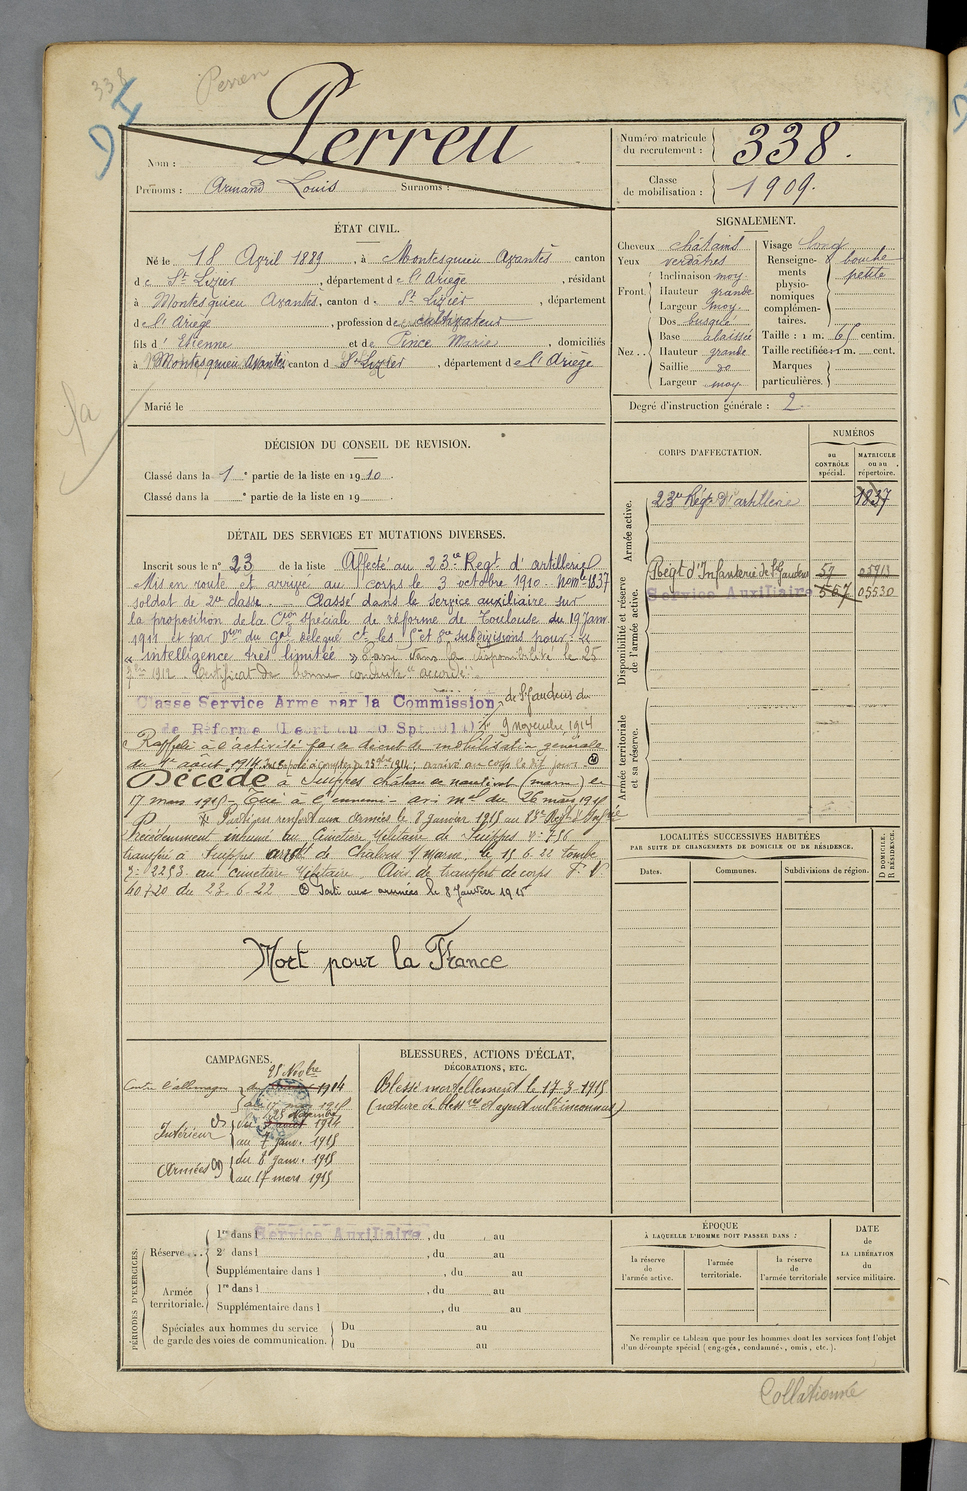 338
Perreu
Nom : Perreu
Prénoms : Armand Louis Surnoms :
Numéro matricule du recrutement : 338.
Classe de mobilisation : 1909.
ÉTAT CIVIL.
Né le 18 Avril 1889, à Montesquieu Avantès canton
de St Lizier, département de l'Ariège, résidant
à Montesquieu Avantès, canton de St Lizier, département
de l'Ariège, profession de cultivateur
fils d' Etienne et de Pince Marie, domiciliés
à Montesquieu Avantès canton de St Lizier, département de l'Ariège
Marié le
SIGNALEMENT.
Cheveux châtains
Yeux verdâtres
Front. Inclinaison moy.
Hauteur grande
Largeur moy.
Nez... Dos busqué
Base abaissée
Hauteur grande
Saillie go
Largeur moy
Visage long
Renseignements physionomiques complémentaires. bouche petite
Taille : 1 m. 65 centim.
Taille rectifiée : 1 m. cent.
Marques particulières.
Degré d'instruction générale : 2
DÉCISION DU CONSEIL DE REVISION.
Classé dans la 1e partie de la liste en 1910.
Classé dans la e partie de la liste en 19
DÉTAIL DES SERVICES ET MUTATIONS DIVERSES.
Inscrit sous le n° 23 de la liste Affecté au 23e Regt d'artillerie
Mis en route et arrivé au corps le 3 octobre 1910. nom le 1837
soldat de 2e classe. Classé dans le service auxiliaire sur
la proposition de la Cion spéciale de réforme de Toulouse du 19 Janv
1911 et par Don du Gal délégué ct les 5e et 8e subdivisions pour
" intelligence très limitée " Passé dans la disponibilité le 25
7bre 1912 Certificat de bonne conduite accordé.
Classe Service Armé par la Commission de St Gaudens du
de Réforme 9 novembre 1914
Rappelé à l'activité par ce décret de mobilisation générale
du 1er août 1914. arrivé au corps le dit jour.
Décédé à Suippes château de nantivet (marne) le
17 mars 1915 - Tué à l'ennemi - avis mel du 26 mars 1915
Parti en renfort aux armées le 8 janvier 1915 au 83e Regt d'Infrie
Précédemment inhumé au Cimetière Militaire de Suippes n° 756
transféré à Suippes arrdt de Chalons s/ Marne, le 15 6 22 tombe
n° 2253 au cimetière Militaire. Avis de transfert de corps F. V
40420 du 23. 6. 22 Parti aux armées le 8 Janvier 1915
Mort pour la France
CORPS D'AFFECTATION.
NUMÉROS
au CONTRÔLE spécial.
MATRICULE ou au répertoire.
Armée active.
23e Régt d'artillerie 1837
Disponibilité et réserve de l'armée active.
Régt d'Infanterie de St Gaudens 59 05913
Service Auxiliaire 567 05530
Armée territoriale et sa réserve.
LOCALITÉS SUCCESSIVES HABITÉES
PAR SUITE DE CHANGEMENTS DE DOMICILE OU DE RÉSIDENCE.
Dates. Communes. Subdivisions de région. D DOMICILE. R RÉSIDENCE.
CAMPAGNES.
Contre l'allemagne du 25 Novbre 1914
au 17 mars 1915
Intérieur du 25 Novembre 1914
au 7 janv. 1915
Armées du 8 janv. 1915
au 17 mars 1915
BLESSURES, ACTIONS D'ÉCLAT,
DÉCORATIONS, ETC.
Blessé mortellement le 17-3-1915
(nature de blessres et agent vult inconnus)
PÉRIODES D'EXERCICES.
Réserve... 1re dans l Service Auxiliaire, du, au
2e dans l, du, au
Supplémentaire dans l, du au
Armée territoriale. 1re dans l, du au
Supplémentaire dans l, du au
Spéciales aux hommes du service de garde des voies de communication. Du au
Du au
ÉPOQUE
À LAQUELLE L'HOMME DOIT PASSER DANS :
la réserve de l'armée active.
l'armée territoriale.
la réserve de l'armée territoriale
DATE de LA LIBÉRATION du service militaire.
Ne remplir ce tableau que pour les hommes dont les services font l'objet
d'un décompte spécial (engagés, condamnés, omis, etc.).
Collationné